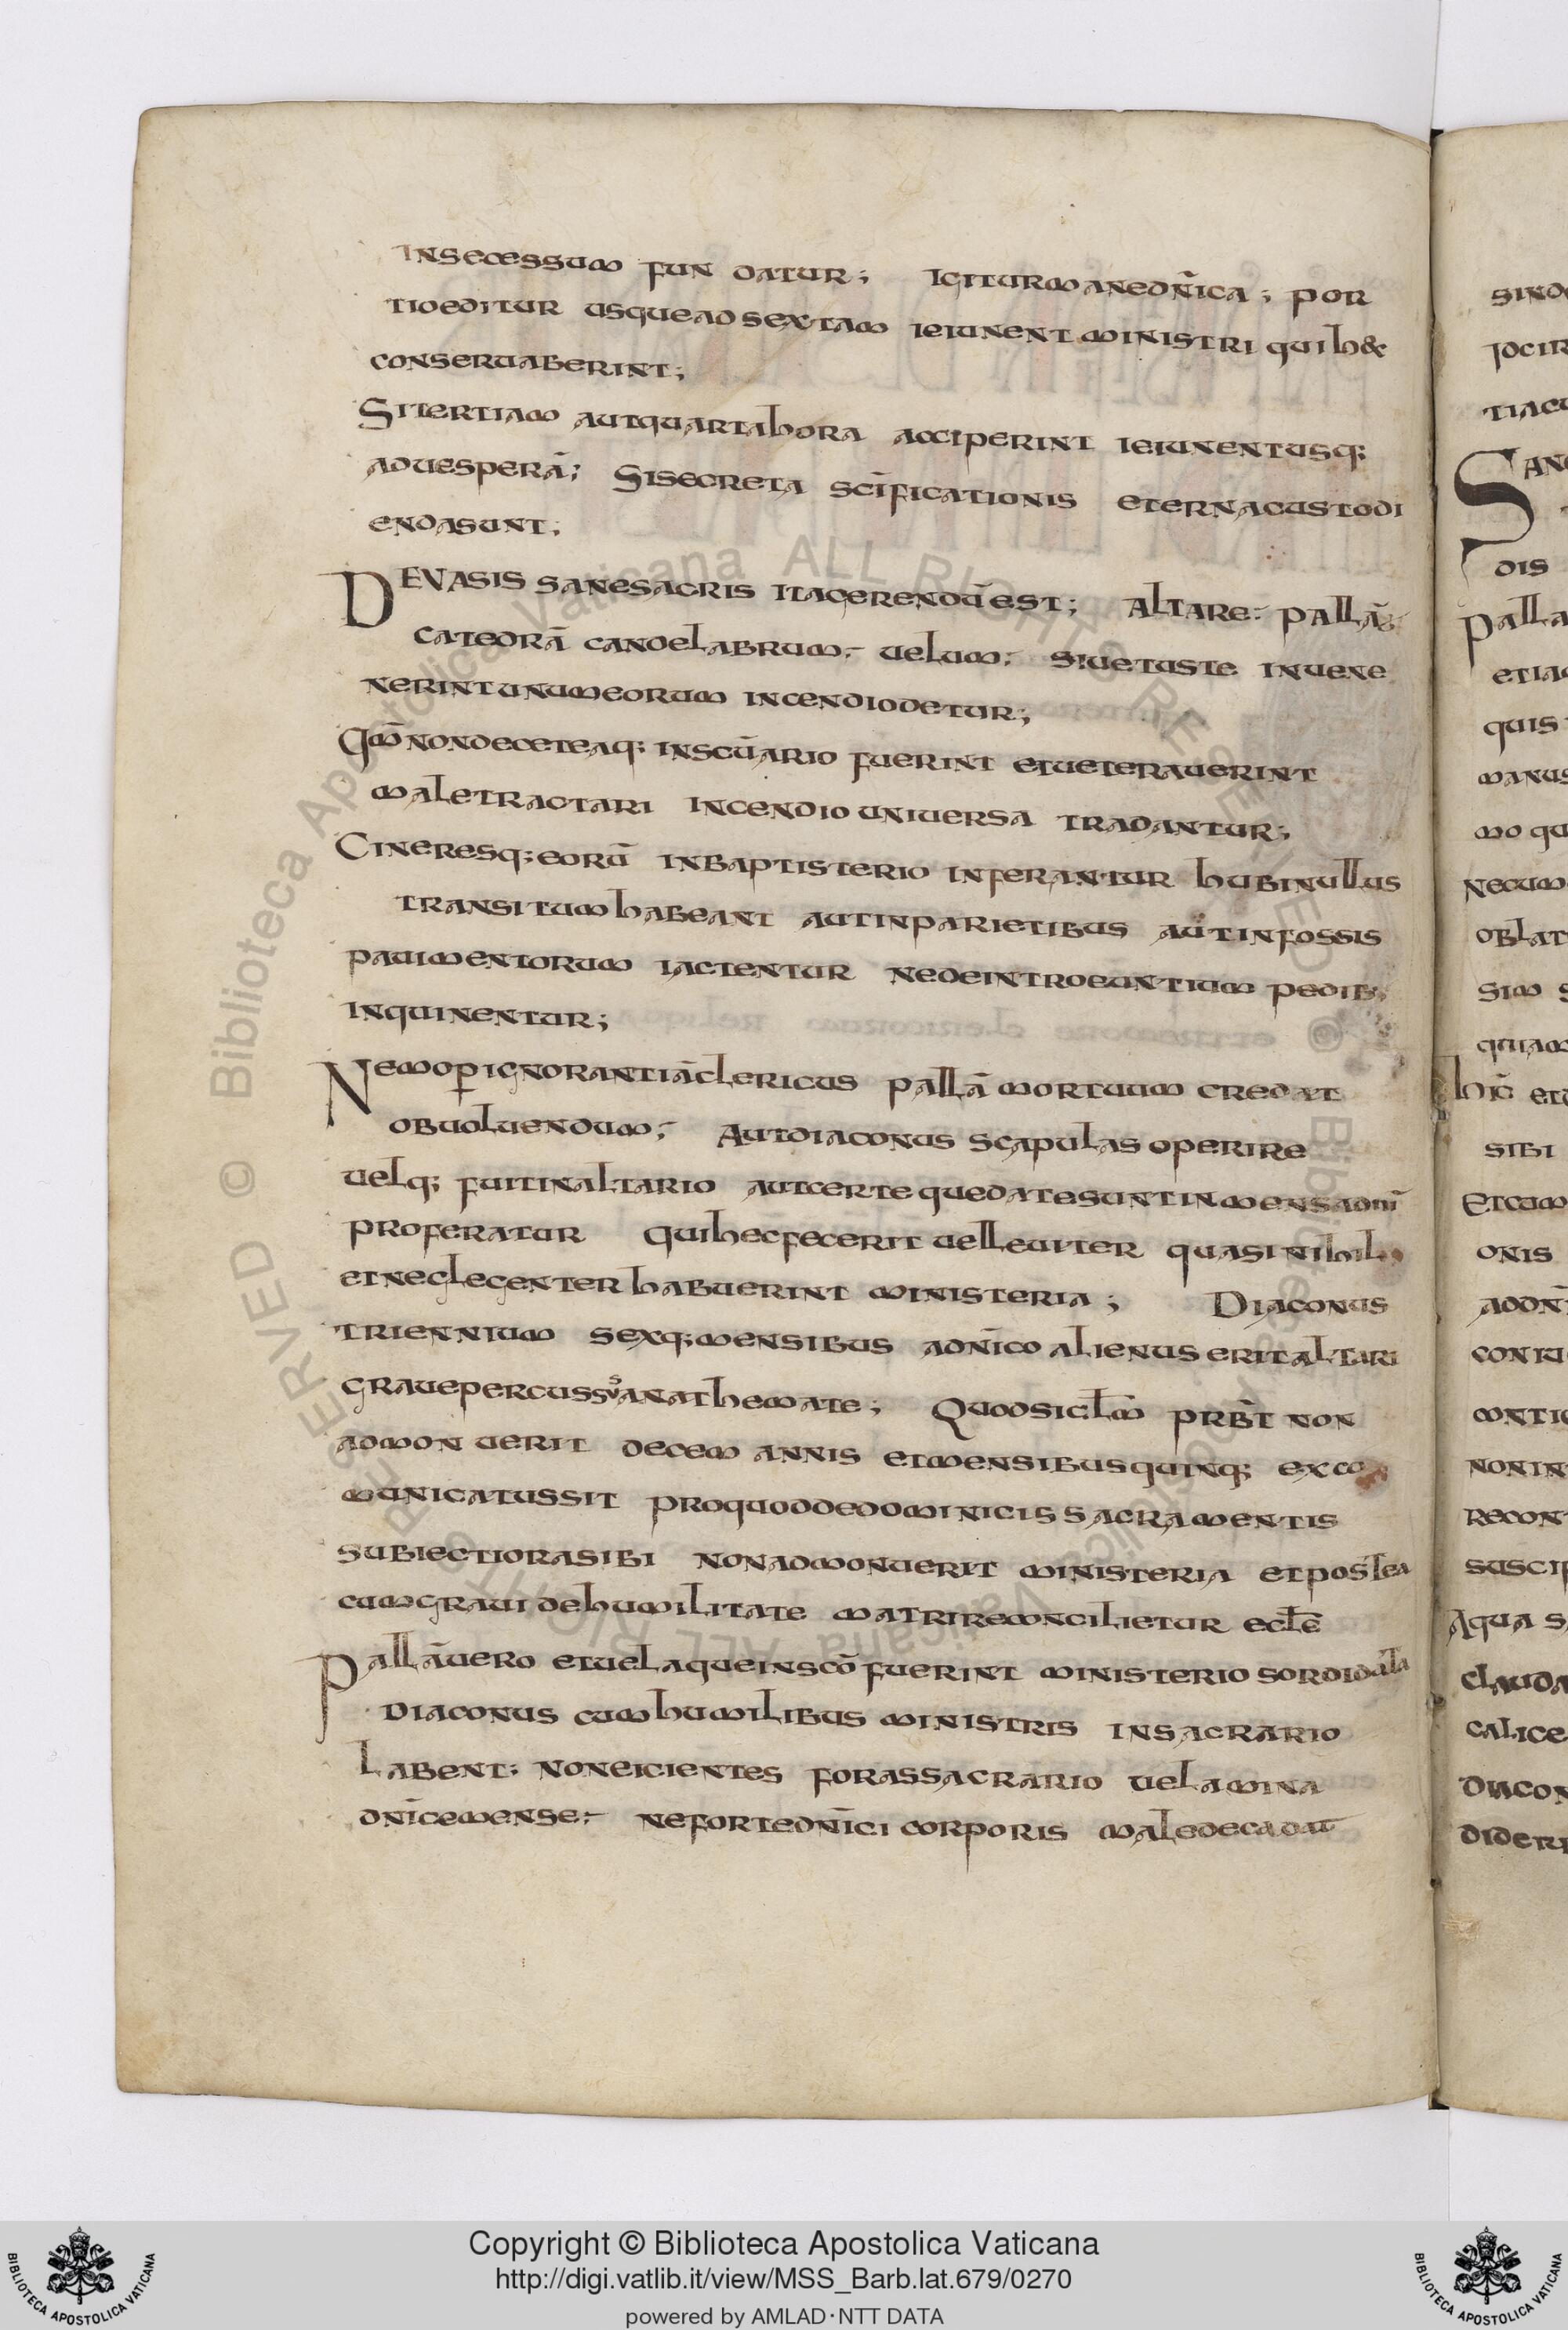 INsecessum fun datur; Igiturmanedn̄ica; por
tioeditur usqueadsextam ieiunent ministri quih&
conseruaberint;
Sitertiam autquartahora acciperint ieiunentusq;
aduesperā; Sisecreta sc̄ificationis eternacustodi
endasunt;
DEVASIS sanesacris Itagerendūest; Altare. pallā;
catedrā candelabrum. uelum. siuetuste inuene
nerintunumeorum incendiodetur;
Qm̄nondeceteaq; inscūario fuerint etueterauerint
maletractari incendiouniuersa tradantur;
Cineresq;eorū inbaptisterio inferantur hubinullus
transitumhabeant autinparietibus autinfossis
pauimentorum iactentur nedeintroeuntium pedib;
inquinentur;
Nemop̱ignorantiāclericus pallā mortuum credat
obuoluendum; Autdiaconus scapulas operire
uelq; fuitinaltario autcerte quedatesuntinmensadn̄i
proferatur quihecfecerit uelleuiter quasinihil
etneglegenter habuerint ministeria; Diaconus
triennium sexq;mensibus adn̄ico alienus eritaltari
grauepercussus̓anathemate; Quodsiclm̄ prb̄t non
admon uerit decem annis etmensibusquinq; exco
municatussit proquoddedominicis sacramentis
subiectiorasibi nonadmonuerit ministeria etpostea
cumgraui dehumilitate matrireconcilietur ecl̄e
Pallāuero etuelaqueinscō fuerint ministerio sordidata
diaconus cumhumilibus ministris insacrario
labent; noneicientes forassacrario uelamina
dn̄icemense; nefortedn̄ici corporis maledecadat
sind
tiacu
San
dis
palla
etia
quis
manus
mo qu
necum
oblat
sim s
quiam
hic et
sibi
Etcum
onis
addn̄
coniu
contic
nonin
recon
suscip
Aqua s
clauda
calice
diacon
dideri
Copyright © Biblioteca Apostolica Vaticana
http://digi.vatlib.it/view/MSS_Barb.lat.679/0270
powered by AMLAD·NTT DATA
BIBLIOTECA APOSTOLICA VATICANA
BIBLIOTECA APOSTOLICA VATICANA
© Biblioteca Apostolica Vaticana ALL RIGHTS RESERVED © Biblioteca Apostolica Vaticana ALL RIGHTS RESERVED